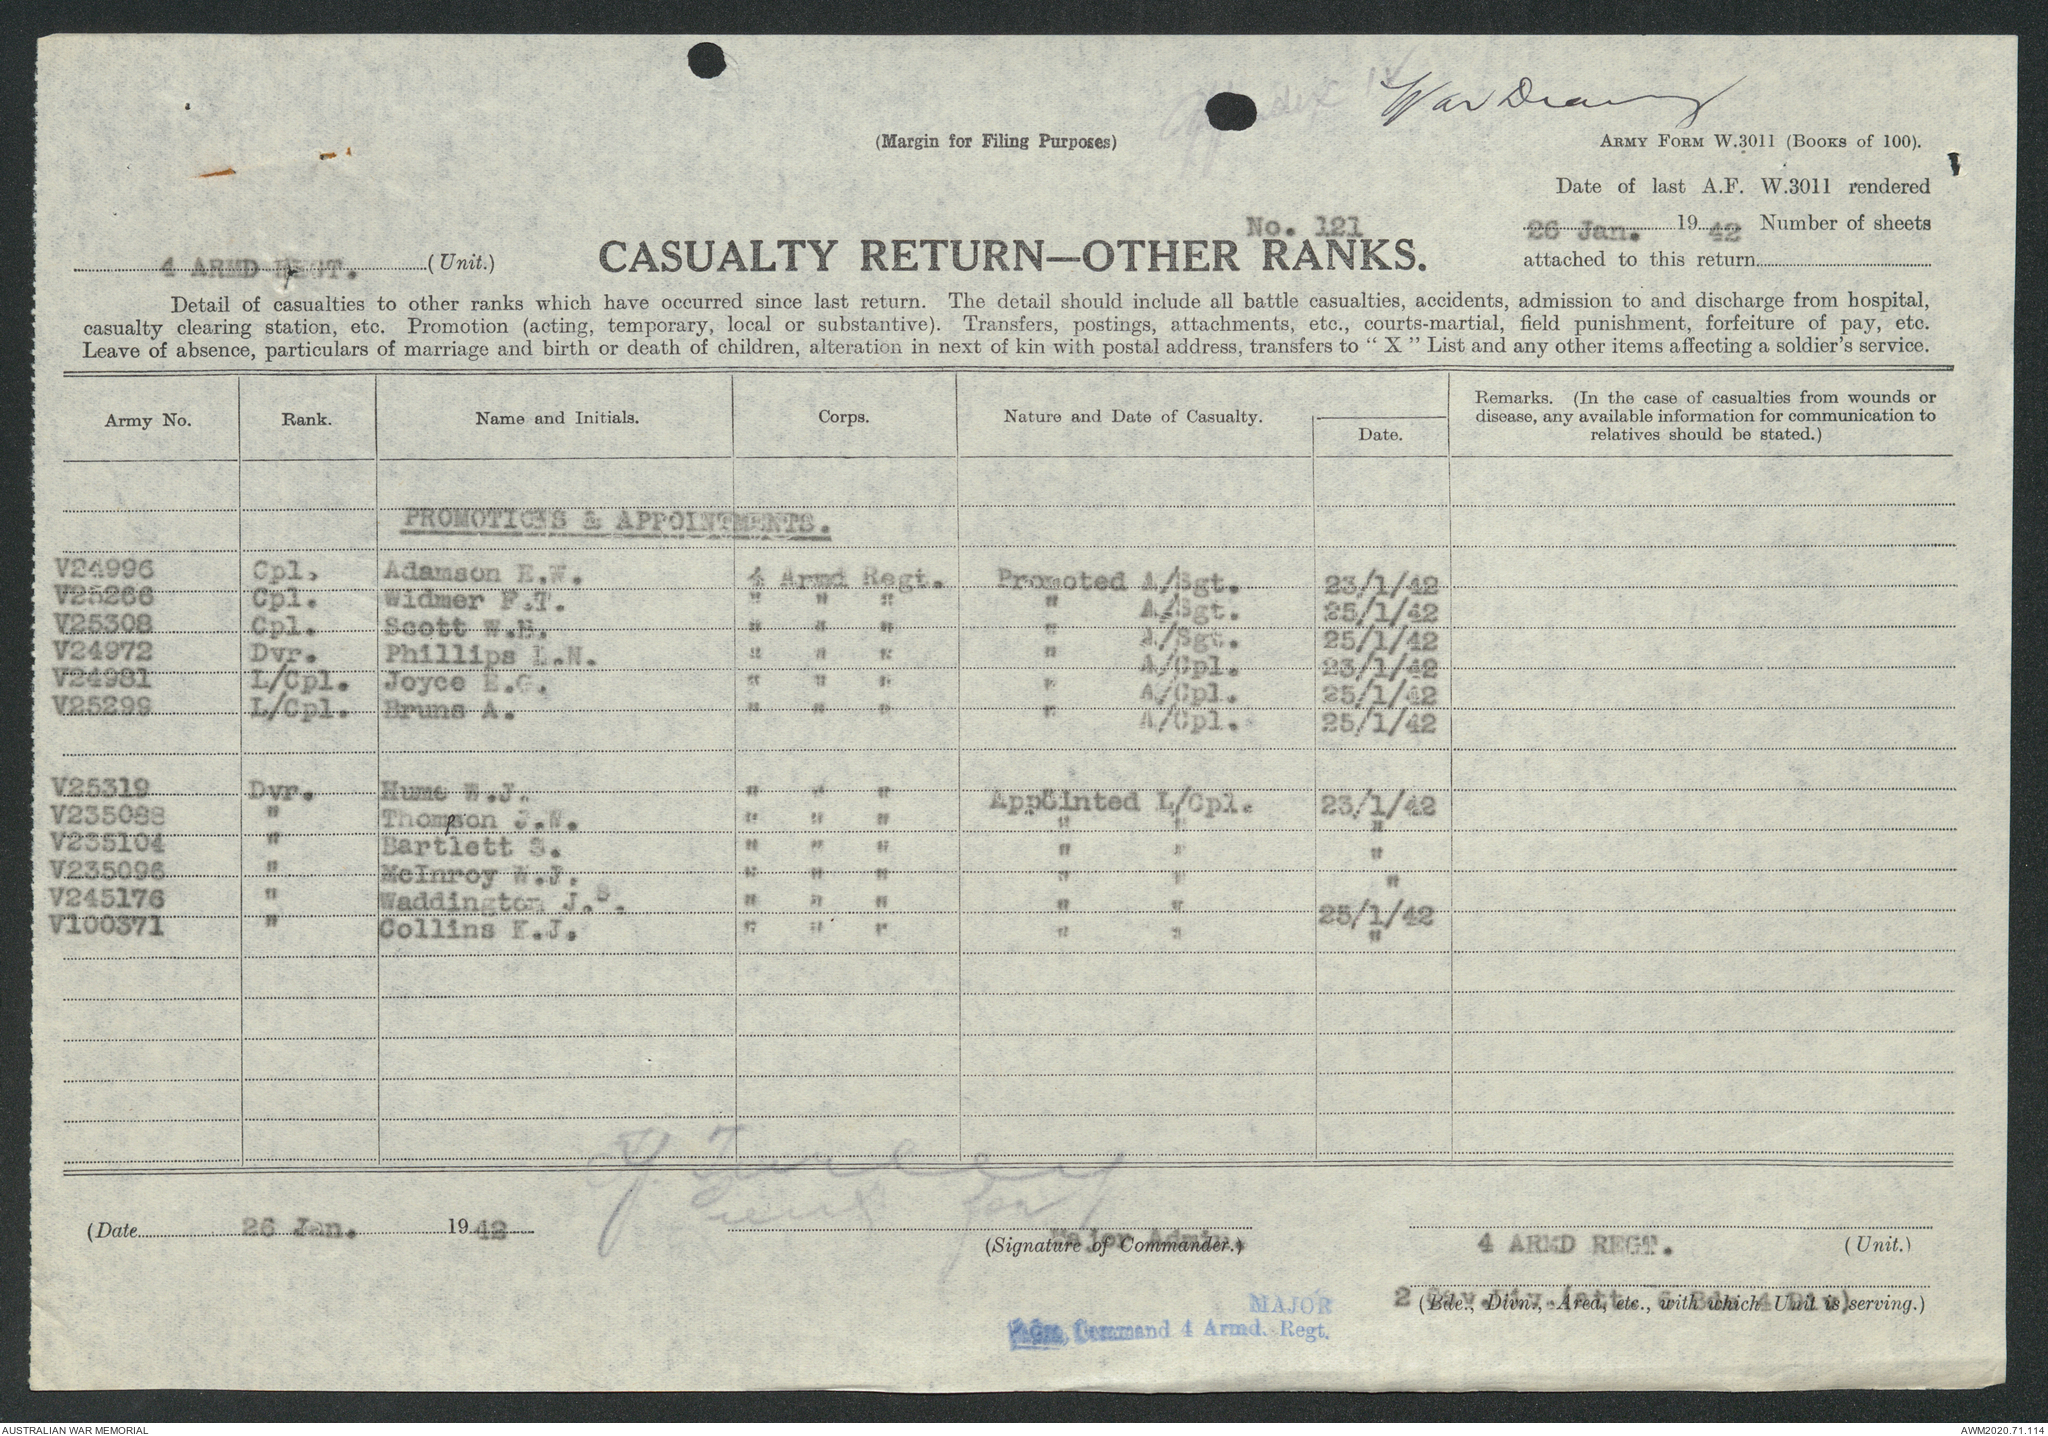 Appendix
War Diary
(Margin for Filing Purposes)
ARMY FORM W.3011 (BOOKS of 100).
Date of last A.F. W.3011 rendered
26 Jan. 19 42 Number of sheets
attached to this return
No. 121
4 ARMD REGT. (Unit.)
CASUALTY RETURN—OTHER RANKS.
Detail of casualties to other ranks which have occurred since last return. The detail should include all battle casualties, accidents, admission to and discharge from hospital,
casualty clearing station, etc. Promotion (acting, temporary, local or substantive). Transfers, postings, attachments, etc., courts-martial, field punishment, forfeiture of pay, etc.
Leave of absence, particulars of marriage and birth or death of children, alteration in next of kin with postal address, transfers to “ X ” List and any other items affecting a soldier's service.
Army No. Rank. Name and Initials. Corps. Nature and Date of Casualty. Date. Remarks. (In the case of casualties from wounds or
disease, any available information for communication to
relatives should be stated.)
PROMOTIONS & APPOINTMENTS.
V24996 Cpl. Adamson E.W. 4 Armd Regt. Promoted A/Sgt. 23/1/42
V25266 Cpl. Widmer F.T. " " " " A/Sgt. 25/1/42
V25308 Cpl. Scott " " " " A/Sgt. 25/1/42
V24972 Dvr. Phillips L.N. " " " " A/Cpl. 23/1/42
V24981 L/Cpl. Joyce E.G. " " " " A/Cpl. 25/1/42
V25299 L/Cpl. Bruns A. " " " " A/Cpl. 25/1/42
V25319 Dvr. Hume W.J. " " " Appointed L/Cpl. 23/1/42
V235088 " Thompson J.N. " " " " " "
V235104 " Bartlett S. " " " " " "
V235096 " McInroy W.J. " " " " " "
V245176 " Waddington J.S. " " " " " 25/1/42
V100371 " Collins K.J. " " " " " "
Lieut for
(Date 26 Jan. 19 42
Major Admin.
(Signature of Commander.)
4 ARMD REGT. (Unit.)
2 Cav Div (att. 6 Bde 4 Div)
(Bde., Divn., Area, etc., with which Unit is serving.)
MAJOR
Adm. Command 4 Armd. Regt.
AUSTRALIAN WAR MEMORIAL
AWM2020.71.114